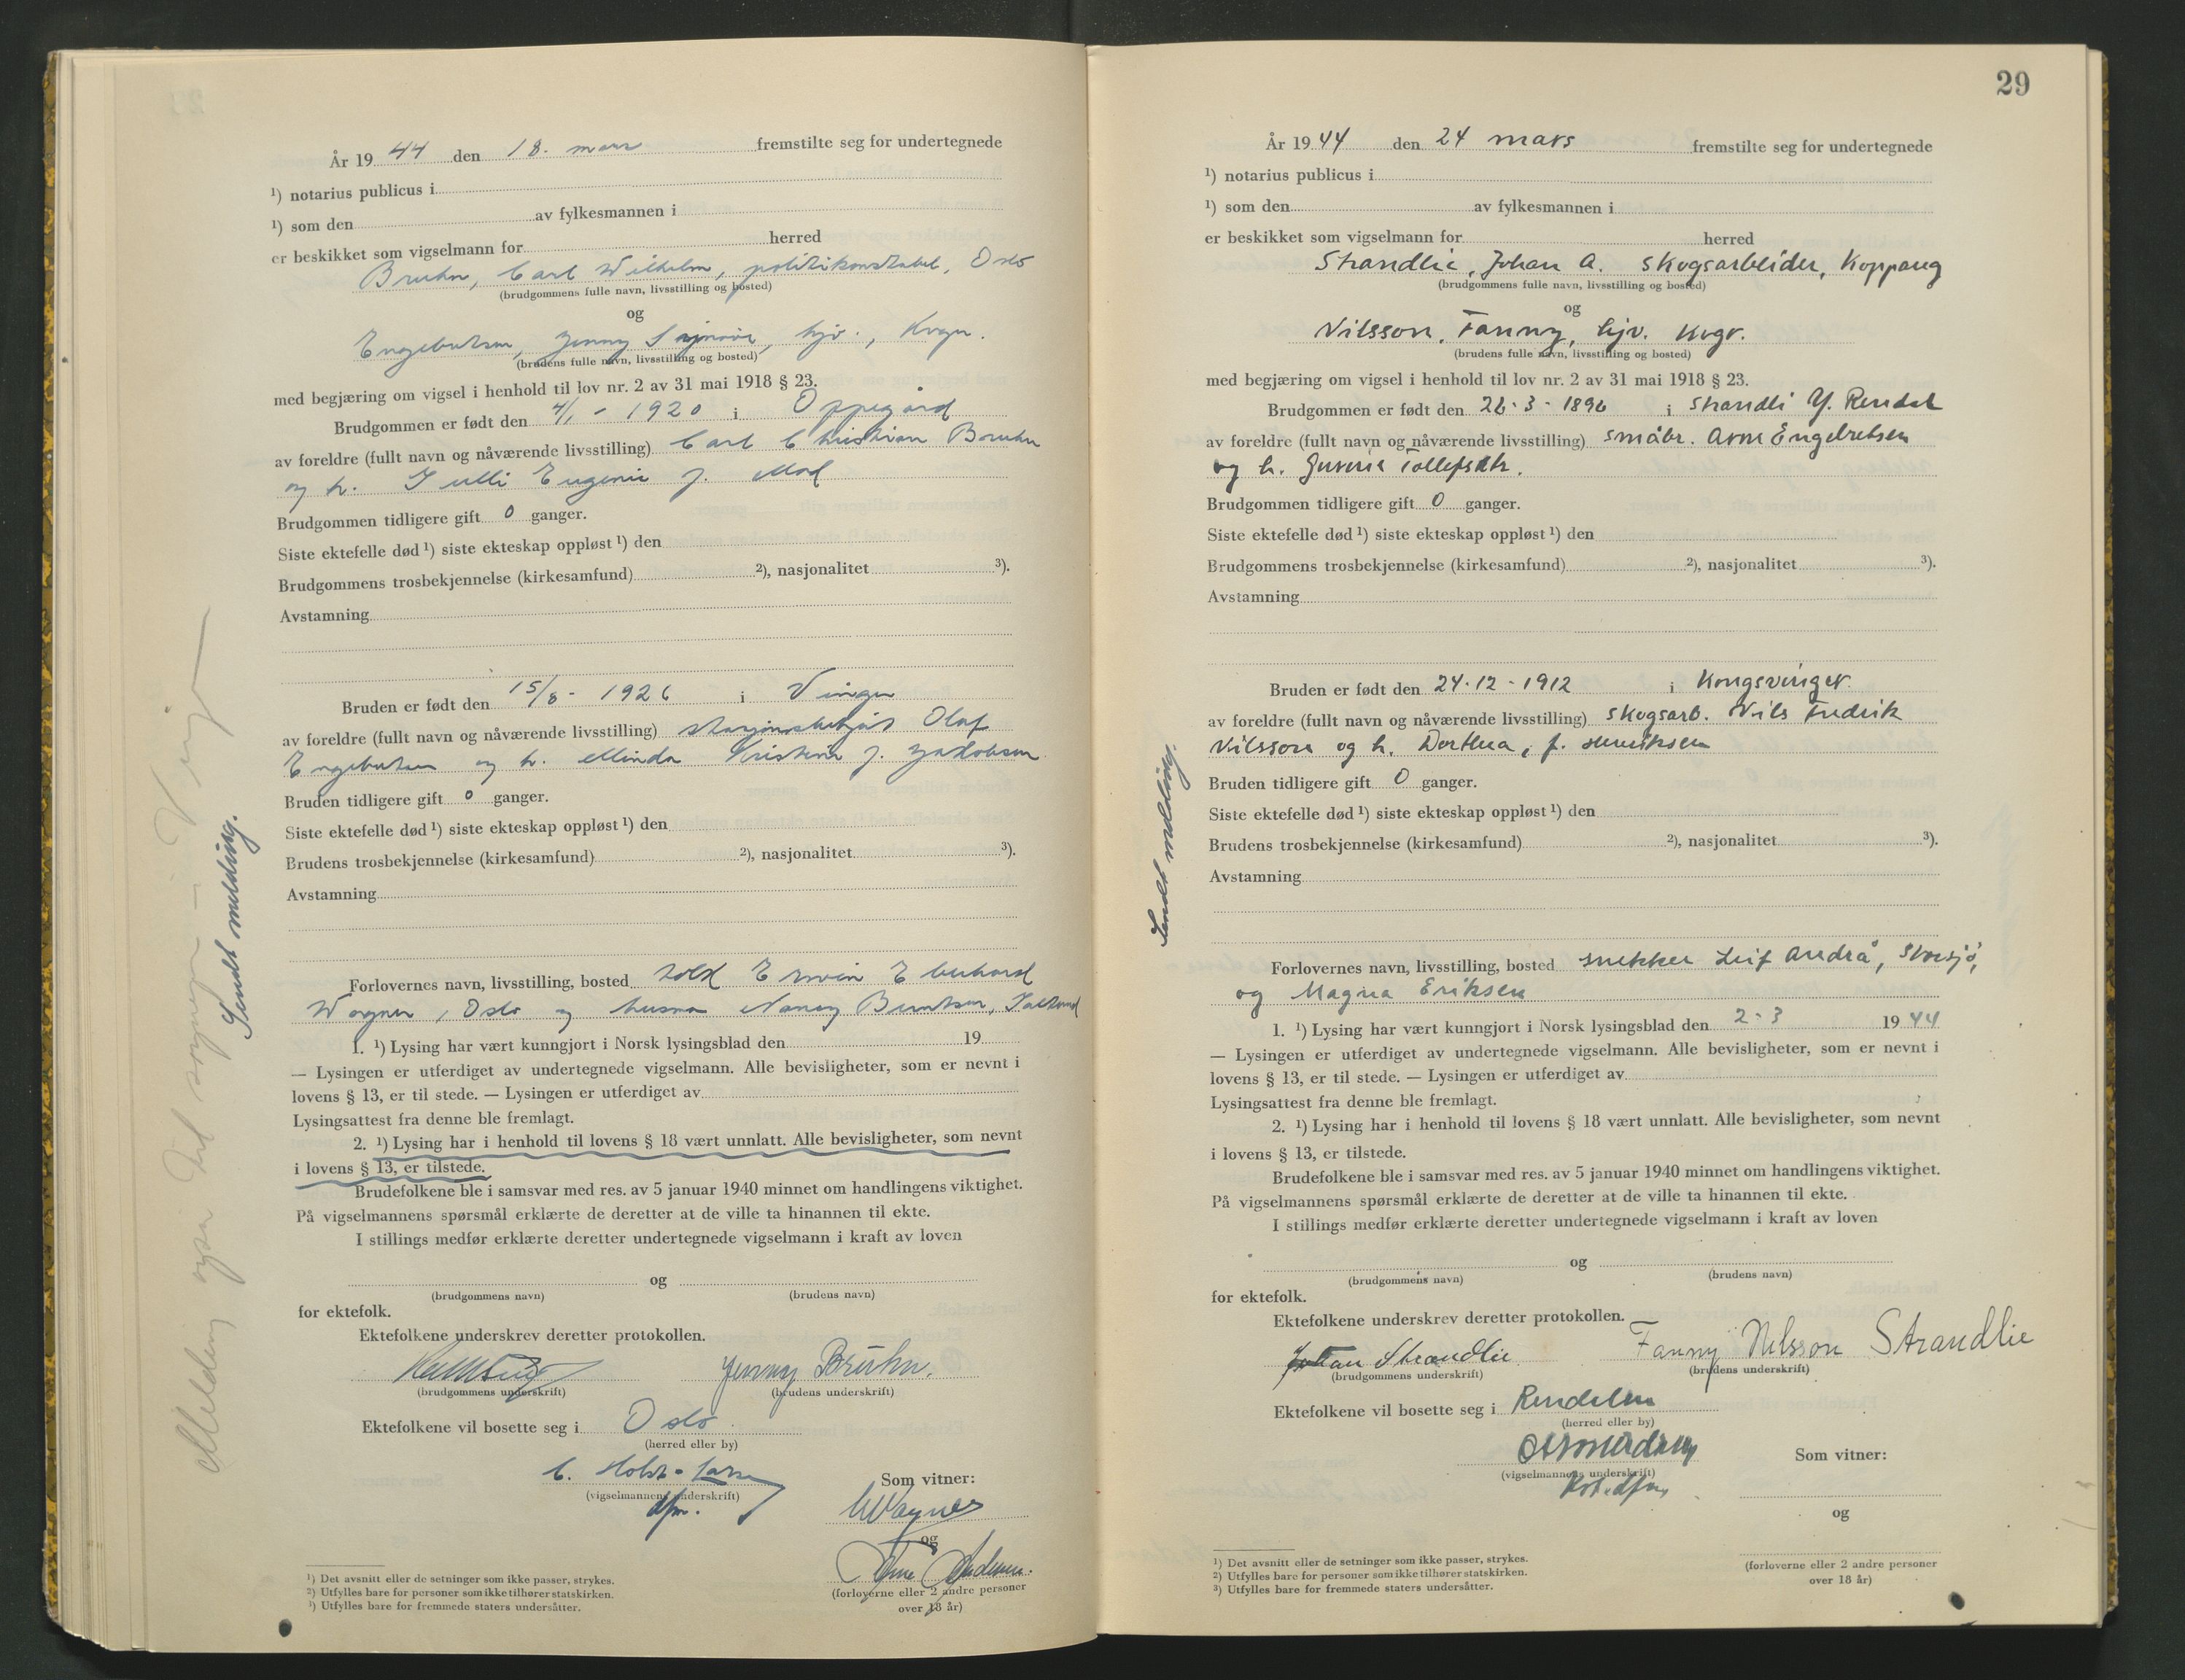 År 1944 den 18. mars fremstilte seg for undertegnede
¹) notarius publicus i
¹) som den av fylkesmannen i
er beskikket som vigselmann for herred
Bruhn, Carl Wilhelm, politikonstabel, Oslo
(brudgommens fulle navn, livsstilling og bosted)
og
Engebretsen, Jenny Synnøve, hjv., Kvgr.
(brudens fulle navn, livsstilling og bosted)
med begjæring om vigsel i henhold til lov nr. 2 av 31 mai 1918 § 23.
Brudgommen er født den 4/1 - 1920 i Oppegård
av foreldre (fullt navn og nåværende livsstilling) Carl Christian Bruhn
og h. Julli Eugenie f. Mod
Brudgommen tidligere gift 0 ganger.
Siste ektefelle død ¹) siste ekteskap oppløst ¹) den
Brudgommens trosbekjennelse (kirkesamfund) ²), nasjonalitet ³).
Avstamning
Bruden er født den 15/8 - 1926 i Vinger
av foreldre (fullt navn og nåværende livsstilling) stasjonsbetjent Olaf
Engebretsen og h. Minda Kristine f. Jakobsen
Bruden tidligere gift 0 ganger.
Siste ektefelle død ¹) siste ekteskap oppløst ¹) den
Brudens trosbekjennelse (kirkesamfund) ²), nasjonalitet ³).
Avstamning
Forlovernes navn, livsstilling, bosted sold Erwin Eberhard
Wagner, Oslo og husm Nancy Berntsen,
1. ¹) Lysing har vært kunngjort i Norsk lysingsblad den 19
— Lysingen er utferdiget av undertegnede vigselmann. Alle bevisligheter, som er nevnt i
lovens § 13, er til stede. — Lysingen er utferdiget av
Lysingsattest fra denne ble fremlagt.
2. ¹) Lysing har i henhold til lovens § 18 vært unnlatt. Alle bevisligheter, som nevnt
i lovens § 13, er tilstede.
Brudefolkene ble i samsvar med res. av 5 januar 1940 minnet om handlingens viktighet.
På vigselmannens spørsmål erklærte de deretter at de ville ta hinannen til ekte.
I stillings medfør erklærte deretter undertegnede vigselmann i kraft av loven
og
(brudgommens navn) (brudens navn)
for ektefolk.
Ektefolkene underskrev deretter protokollen.
Jenny Bruhn.
(brudgommens underskrift) (brudens underskrift)
Ektefolkene vil bosette seg i Oslo.
(herred eller by)
C. Holst-Larsen Som vitner:
(vigselmannens underskrift)
dfm. Wagner
og
Arne Andersen.
(forloverne eller 2 andre personer
over 18 år)
¹) Det avsnitt eller de setninger som ikke passer, strykes.
²) Utfylles bare for personer som ikke tilhører statskirken.
³) Utfylles bare for fremmede staters undersåtter.
Sendt melding.
Melding også til sognepr. i Vinger
29
År 1944 den 24 mars fremstilte seg for undertegnede
¹) notarius publicus i
¹) som den av fylkesmannen i
er beskikket som vigselmann for herred
Strandlie, Johan A. skogsarbeider, Koppang
(brudgommens fulle navn, livsstilling og bosted)
og
Nilsson, Fanny, hjv. Kvgr.
(brudens fulle navn, livsstilling og bosted)
med begjæring om vigsel i henhold til lov nr. 2 av 31 mai 1918 § 23.
Brudgommen er født den 26-3-1896 i Strandli Y. Rendal
av foreldre (fullt navn og nåværende livsstilling) småbr. Arne Engebretsen
og h. Tollefsdtr.
Brudgommen tidligere gift 0 ganger.
Siste ektefelle død ¹) siste ekteskap oppløst ¹) den
Brudgommens trosbekjennelse (kirkesamfund) ²), nasjonalitet ³).
Avstamning
Bruden er født den 24-12-1912 i Kongsvinger.
av foreldre (fullt navn og nåværende livsstilling) skogsarb. Nils Fredrik
Nilsson og h. Dorthea, f. Henriksen
Bruden tidligere gift 0 ganger.
Siste ektefelle død ¹) siste ekteskap oppløst ¹) den
Brudens trosbekjennelse (kirkesamfund) ²), nasjonalitet ³).
Avstamning
Forlovernes navn, livsstilling, bosted snekker Leif Andrå, Storsjø,
og Magna Eriksen
1. ¹) Lysing har vært kunngjort i Norsk lysingsblad den 2-3 1944
— Lysingen er utferdiget av undertegnede vigselmann. Alle bevisligheter, som er nevnt i
lovens § 13, er til stede. — Lysingen er utferdiget av
Lysingsattest fra denne ble fremlagt.
2. ¹) Lysing har i henhold til lovens § 18 vært unnlatt. Alle bevisligheter, som nevnt
i lovens § 13, er tilstede.
Brudefolkene ble i samsvar med res. av 5 januar 1940 minnet om handlingens viktighet.
På vigselmannens spørsmål erklærte de deretter at de ville ta hinannen til ekte.
I stillings medfør erklærte deretter undertegnede vigselmann i kraft av loven
og
(brudgommens navn) (brudens navn)
for ektefolk.
Ektefolkene underskrev deretter protokollen.
Johan Strandlie Fanny Nilsson Strandlie
(brudgommens underskrift) (brudens underskrift)
Ektefolkene vil bosette seg i Rendalen
(herred eller by)
Som vitner:
(vigselmannens underskrift)
og
(forloverne eller 2 andre personer
over 18 år)
¹) Det avsnitt eller de setninger som ikke passer, strykes.
²) Utfylles bare for personer som ikke tilhører statskirken.
³) Utfylles bare for fremmede staters undersåtter.
Sendt melding.